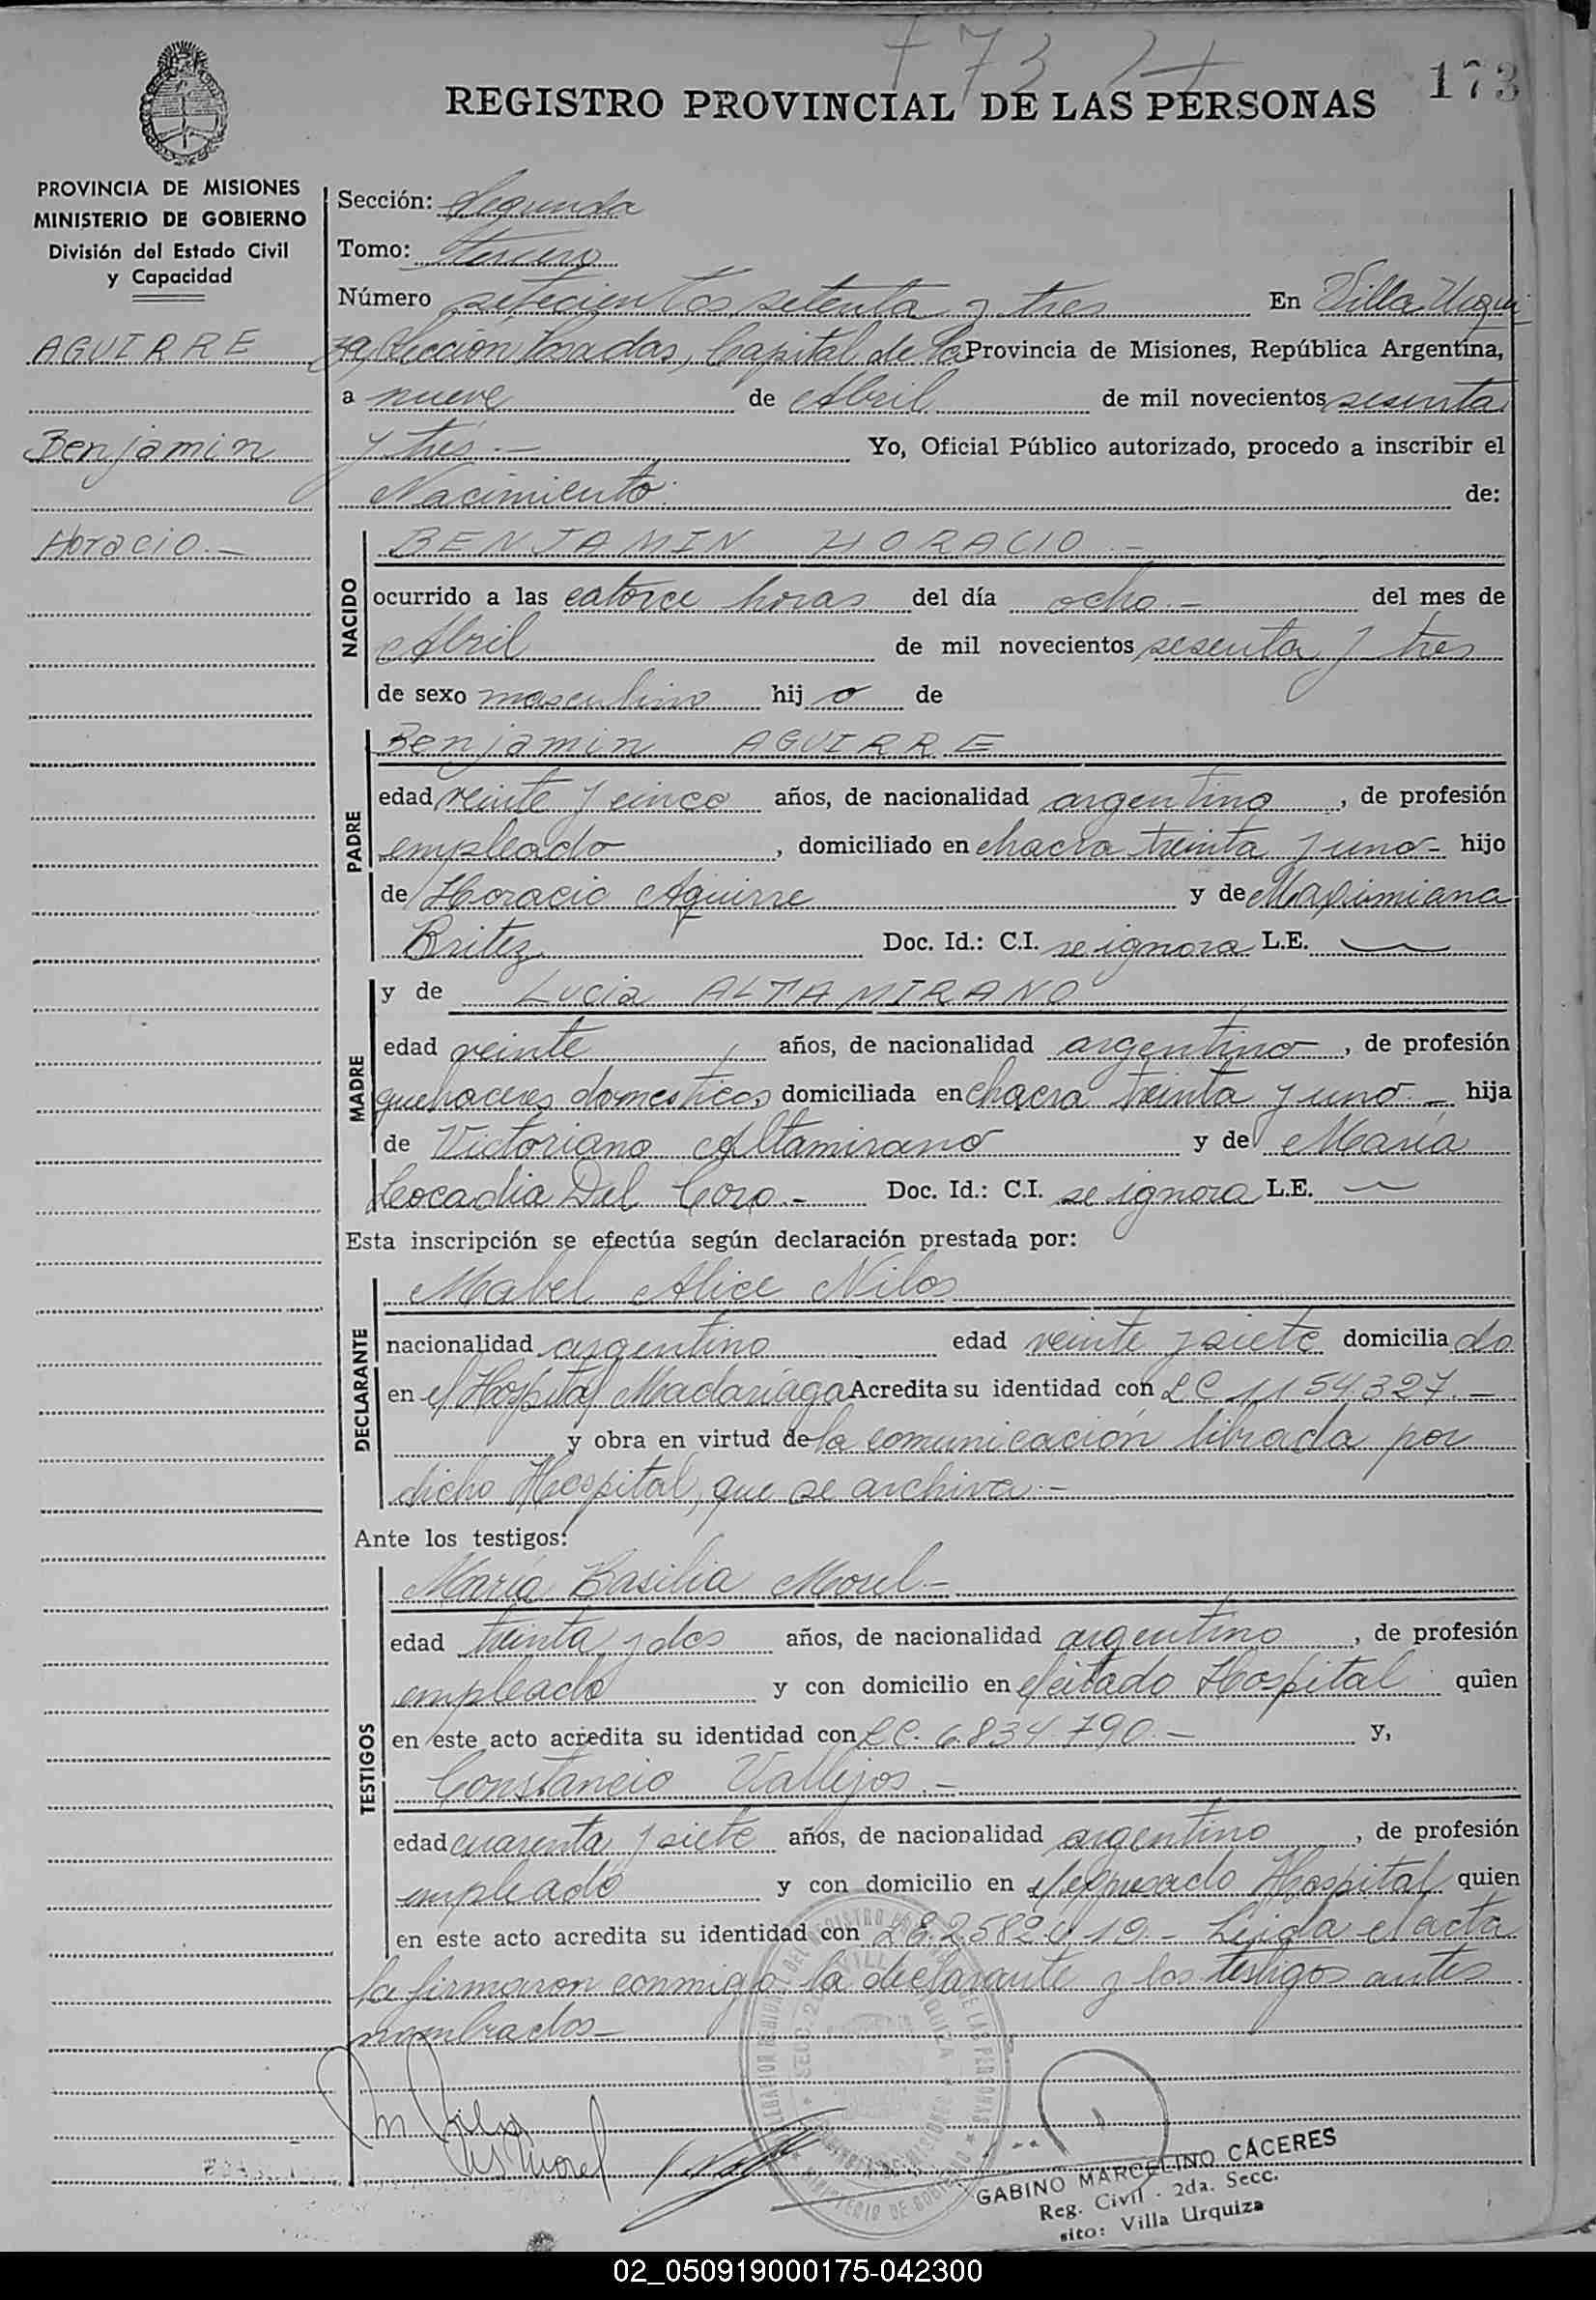 173
REGISTRO PROVINCIAL DE LAS PERSONAS
PROVINCIA DE MISIONES
MINISTERIO DE GOBIERNO
División del Estado Civil
y Capacidad
AGUIRRE
Benjamin
Horacio.-
Sección: Segunda
Tomo: tercero
Número setecientos setenta y tres En Villa Urqui
za, Sección Posadas, Capital de la Provincia de Misiones, República Argentina,
a nueve de Abril de mil novecientos sesenta
y tres.- Yo, Oficial Público autorizado, procedo a inscribir el
Nacimiento de:
NACIDO
BENJAMIN HORACIO.-
ocurrido a las catorce horas del día ocho.- del mes de
Abril de mil novecientos sesenta y tres
de sexo masculino hijo de
PADRE
Benjamin AGUIRRE
edad veinte y cinco años, de nacionalidad argentino, de profesión
empleado, domiciliado en chacra treinta y uno- hijo
de Horacio Aguirre y de Maximiana
Britez Doc. Id.: C.I. se ignora L.E.
MADRE
y de Lucia ALTAMIRANO
edad veinte años, de nacionalidad argentino, de profesión
quehaceres domesticos domiciliada en chacra treinta y uno.- hija
de Victoriano Altamirano y de María
Leocadia Del Coro.- Doc. Id.: C.I. se ignora L.E.
Esta inscripción se efectúa según declaración prestada por:
DECLARANTE
Mabel Alice Nilos
nacionalidad argentino edad veinte y siete domiciliado
en el Hospital Madariaga Acredita su identidad con LC 1154.327.-
y obra en virtud de la comunicación librada por
dicho Hospital, que se archiva.-
Ante los testigos:
TESTIGOS
María Basilia Morel.-
edad treinta y dos años, de nacionalidad argentino, de profesión
empleado y con domicilio en el citado Hospital quien
en este acto acredita su identidad con LC. 6.834.790.- y,
Constancio Vallejos.-
edad cuarenta y siete años, de nacionalidad argentino, de profesión
empleado y con domicilio en el expresado Hospital quien
en este acto acredita su identidad con LE. 2.582.019.- Leida el acta
la firmaron conmigo, la declarante y los testigos antes
nombrados-
GABINO MARCELINO CACERES
Reg. Civil - 2da. Secc.
sito: Villa Urquiza
02_050919000175-042300